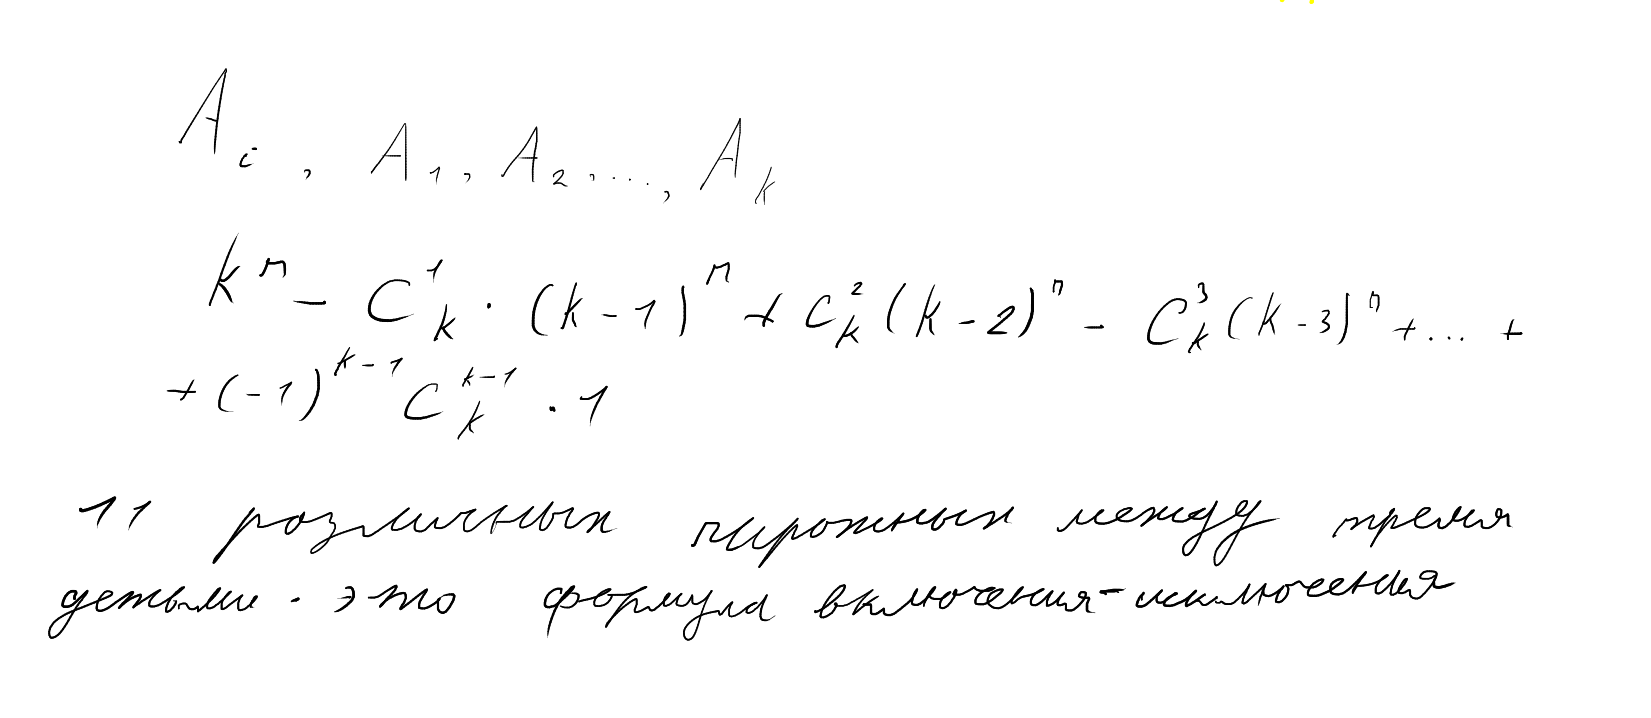 A_i, A_1, A_2, ..., A_k
k^n - C_k^1 · (k-1)^n + C_k^2 (k-2)^n - C_k^3 (k-3)^n + ... +
+ (-1)^{k-1} C_k^{k-1} · 1
11 различных пирожных между тремя
детьми. это формула включения-исключения